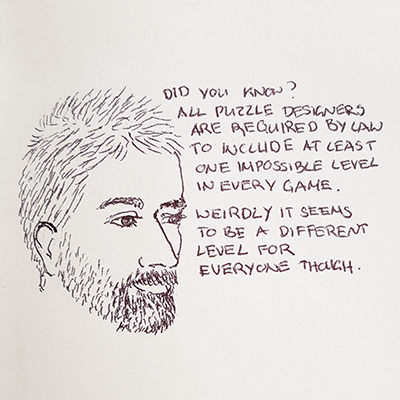 DID YOU KNOW?
ALL PUZZLE DESIGNERS
ARE REQUIRED BY LAW
TO INCLUDE AT LEAST
ONE IMPOSSIBLE LEVEL
IN EVERY GAME.
WEIRDLY IT SEEMS
TO BE A DIFFERENT
LEVEL FOR
EVERYONE THOUGH.